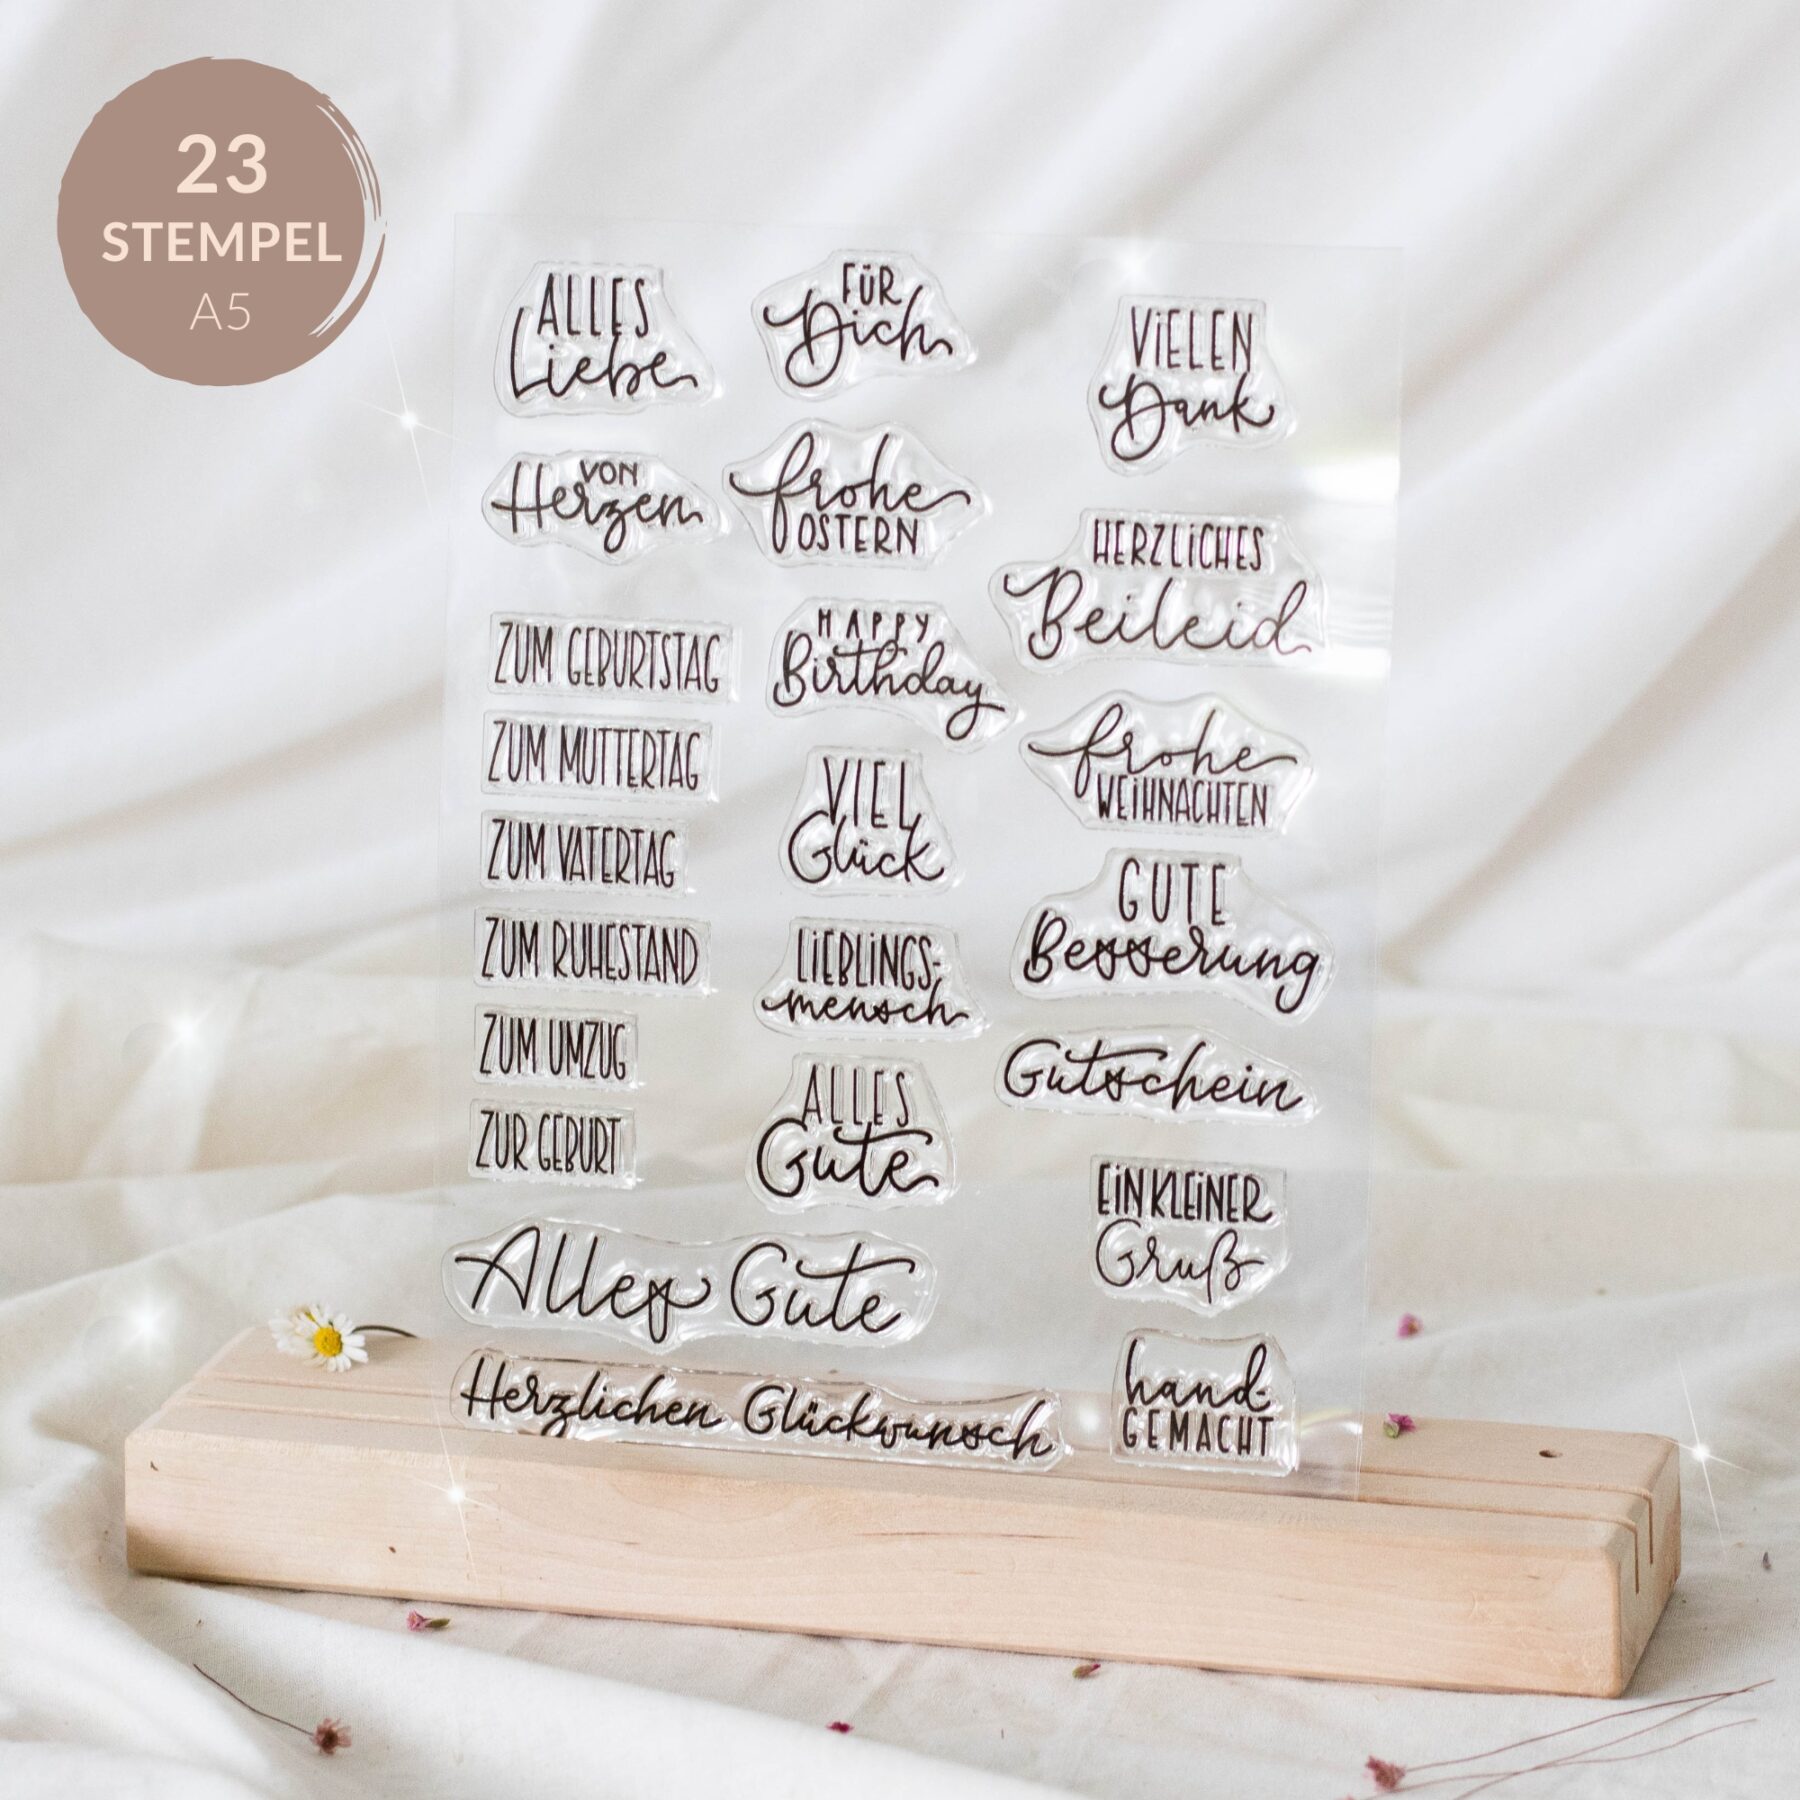 23
STEMPEL
A5
ALLES
Liebe
FÜR
Dich
VIELEN
Dank
VON
Herzen
frohe
OSTERN
HERZLICHES
Beileid
ZUM GEBURTSTAG
HAPPY
Birthday
ZUM MUTTERTAG
frohe
WEIHNACHTEN
ZUM VATERTAG
VIEL
Glück
GUTE
Besserung
ZUM RUHESTAND
LIEBLINGS-
mensch
ZUM UMZUG
Gutschein
ZUR GEBURT
ALLES
Gute
EIN KLEINER
Gruß
Alles Gute
hand-
GEMACHT
Herzlichen Glückwunsch